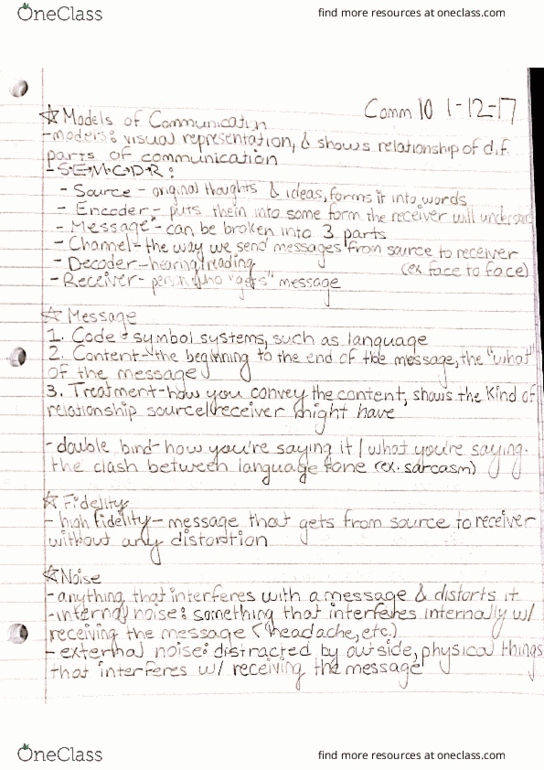 OneClass
find more resources at oneclass.com
Comm 10 1-12-17
☆Models of Communication
-models: visual representation, & shows relationship of dif.
parts of communication
-S→E→M→C→D→R:
- Source - original thoughts & ideas, forms it into words
- Encoder - puts them into some form the receiver will understand
- Message - can be broken into 3 parts
- Channel - the way we send messages from source to receiver
(ex face to face)
- Decoder - hearing/reading
- Receiver - person who "gets" message
☆ Message
1. Code - symbol systems, such as language
2. Content - the beginning to the end of the message, the "what"
of the message
3. Treatment - how you convey the content, shows the kind of
relationship source/receiver might have
- double bind - how you're saying it / what you're saying.
the clash between language tone (ex. sarcasm)
☆ Fidelity
- high fidelity - message that gets from source to receiver
without any distortion
☆Noise
-anything that interferes with a message & distorts it
-internal noise: something that interferes internally w/
receiving the message (headache, etc.)
- external noise: distracted by outside, physical things
that interferes w/ receiving the message
OneClass
find more resources at oneclass.com